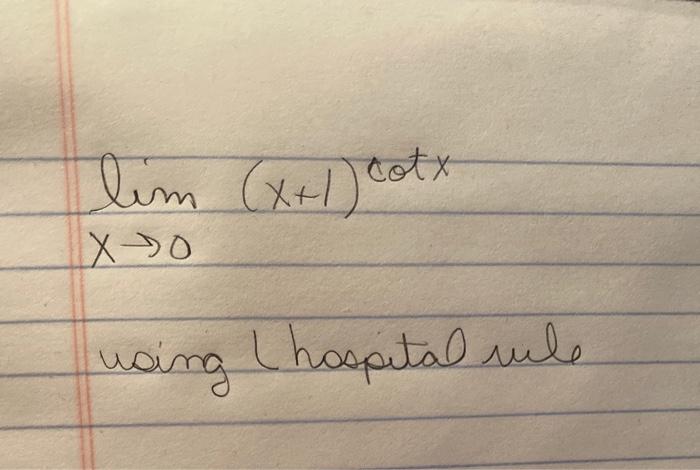 lim (x+1)^cotx
x→0
using Lhospital rule